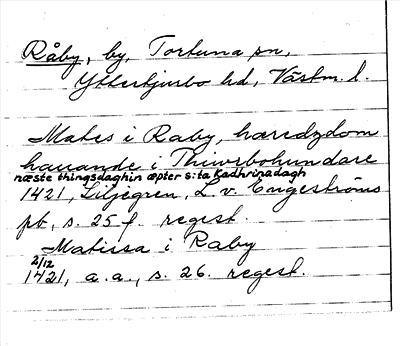 Råby, by, Tortuna sn,
Ytterkjurbo hd, Västm. l.
Mates i Raby, hæredzdom
hauande i Thiurbohundare
næste thingsdaghin æpter s:ta Kadhrinadagh
1421, Liljegren, L. v. Engeströms
pb, s. 25 f. regest.
Matissa i Raby
2/12
1421, a.a., s. 26. regest.